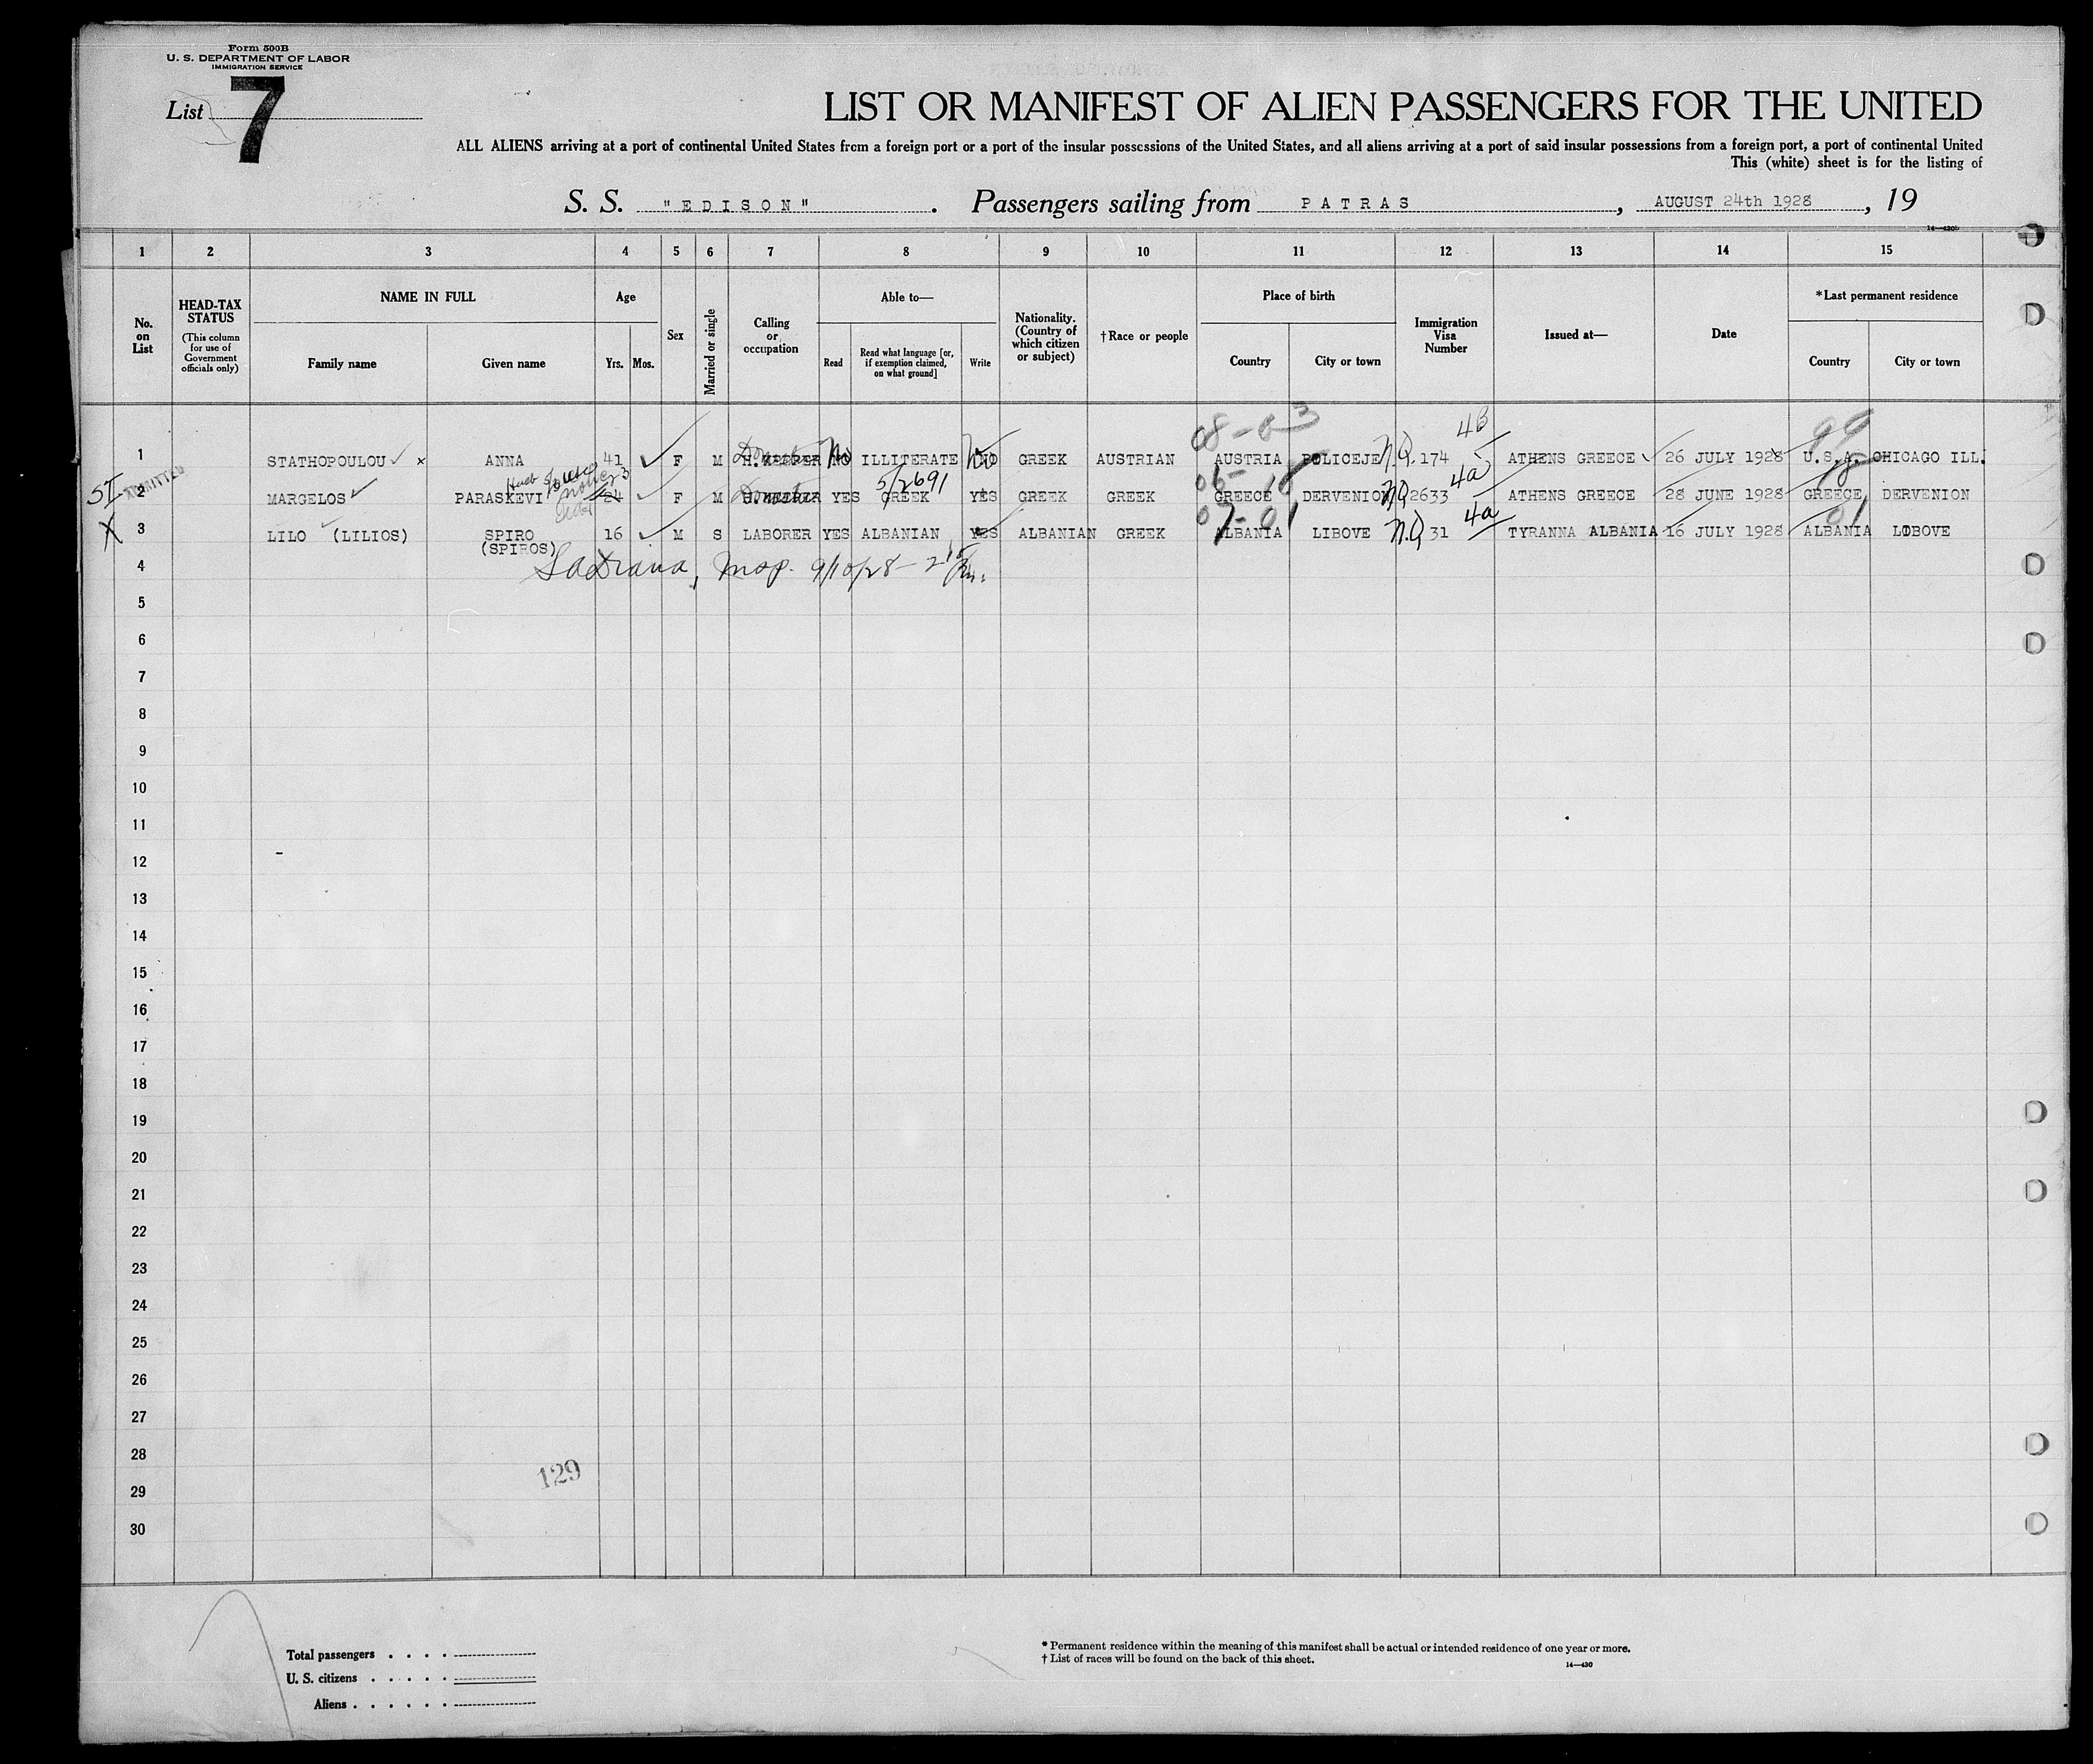 Form 500B
U. S. DEPARTMENT OF LABOR
IMMIGRATION SERVICE
List 7
LIST OR MANIFEST OF ALIEN PASSENGERS FOR THE UNITED
ALL ALIENS arriving at a port of continental United States from a foreign port or a port of the insular possessions of the United States, and all aliens arriving at a port of said insular possessions from a foreign port, a port of continental United
This (white) sheet is for the listing of
S. S. "EDISON". Passengers sailing from PATRAS, AUGUST 24th 1928, 19
14—430b
1 2 3 4 5 6 7 8 9 10 11 12 13 14 15
No. on List
HEAD-TAX STATUS (This column for use of Government officials only)
NAME IN FULL
Family name Given name
Age
Yrs. Mos.
Sex
Married or single
Calling or occupation
Able to—
Read Read what language [or, if exemption claimed, on what ground] Write
Nationality. (Country of which citizen or subject)
†Race or people
Place of birth
Country City or town
Immigration Visa Number
Issued at—
Date
*Last permanent residence
Country City or town
08-03 4B 99
1 STATHOPOULOU x ANNA 41 F M H.KEEPER NO No ILLITERATE NO No GREEK AUSTRIAN AUSTRIA POLICEJE N.Q. 174 ATHENS GREECE 26 JULY 1928 U.S.A. CHICAGO ILL.
SI ADMITTED 5/2691 4a
2 MARGELOS PARASKEVI 24 23 F M YES GREEK YES GREEK GREEK GREECE DERVENION NQ 2633 ATHENS GREECE 28 JUNE 1928 GREECE DERVENION
07-01 4a 01
X 3 LILO (LILIOS) SPIRO 16 M S LABORER YES ALBANIAN YES ALBANIAN GREEK ALBANIA LIBOVE N.Q 31 TYRANNA ALBANIA 16 JULY 1928 ALBANIA LIBOVE
(SPIROS)
4 9/10/28
5
6
7
8
9
10
11
12
13
14
15
16
17
18
19
20
21
22
23
24
25
26
27
28
129
29
30
Total passengers
U. S. citizens
Aliens
* Permanent residence within the meaning of this manifest shall be actual or intended residence of one year or more.
† List of races will be found on the back of this sheet.
14—430